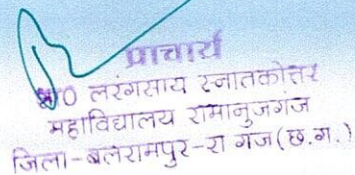 प्राचार्य
शा0 लरंगसाय स्नातकोत्तर
महाविद्यालय रामानुजगंज
जिला-बलरामपुर-रा गंज (छ.ग.)